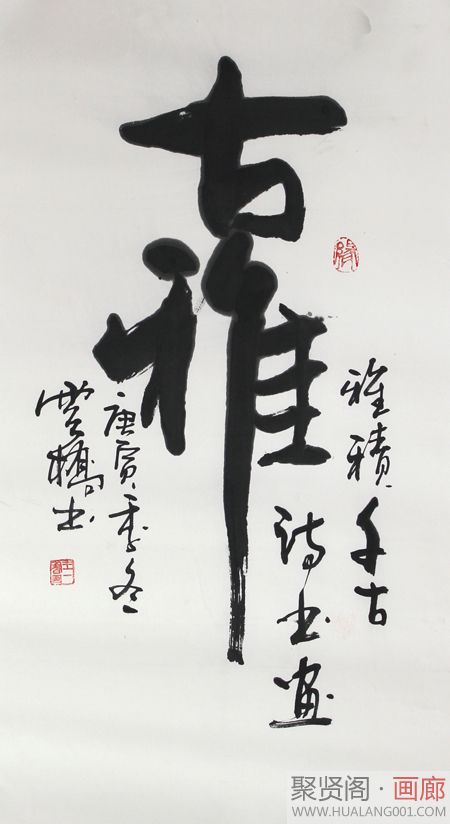 古雅
雅積千古
诗书画
庚寅季冬
雲橋书
聚贤阁·画廊
WWW.HUALANG001.COM